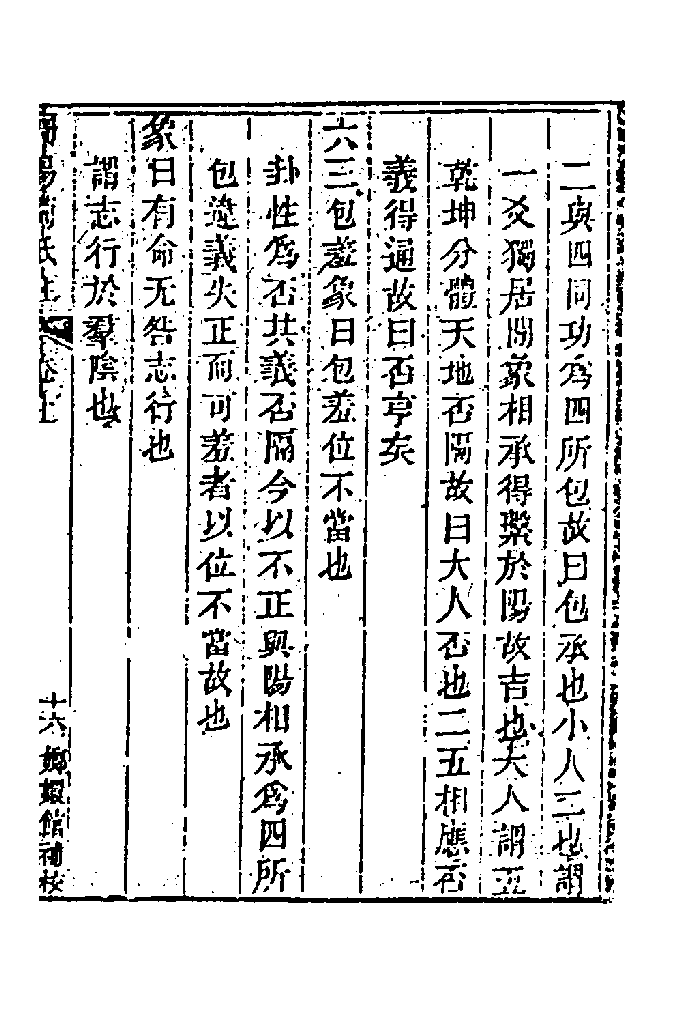 二與四同功爲四所包故曰包承也小人二也謂
一爻獨居間象相承得繫於陽故吉也大人謂五
乾坤分體天地否隔故曰大人否也二五相應否
義得通故曰否亨矣
六三包羞象曰包羞位不當也
卦性爲否其義否隔今以不正與陽相承爲四所
包違義失正而可羞者以位不當故也
象曰有命无咎志行也
謂志行於羣陰也
十六 嫏嬛館補校